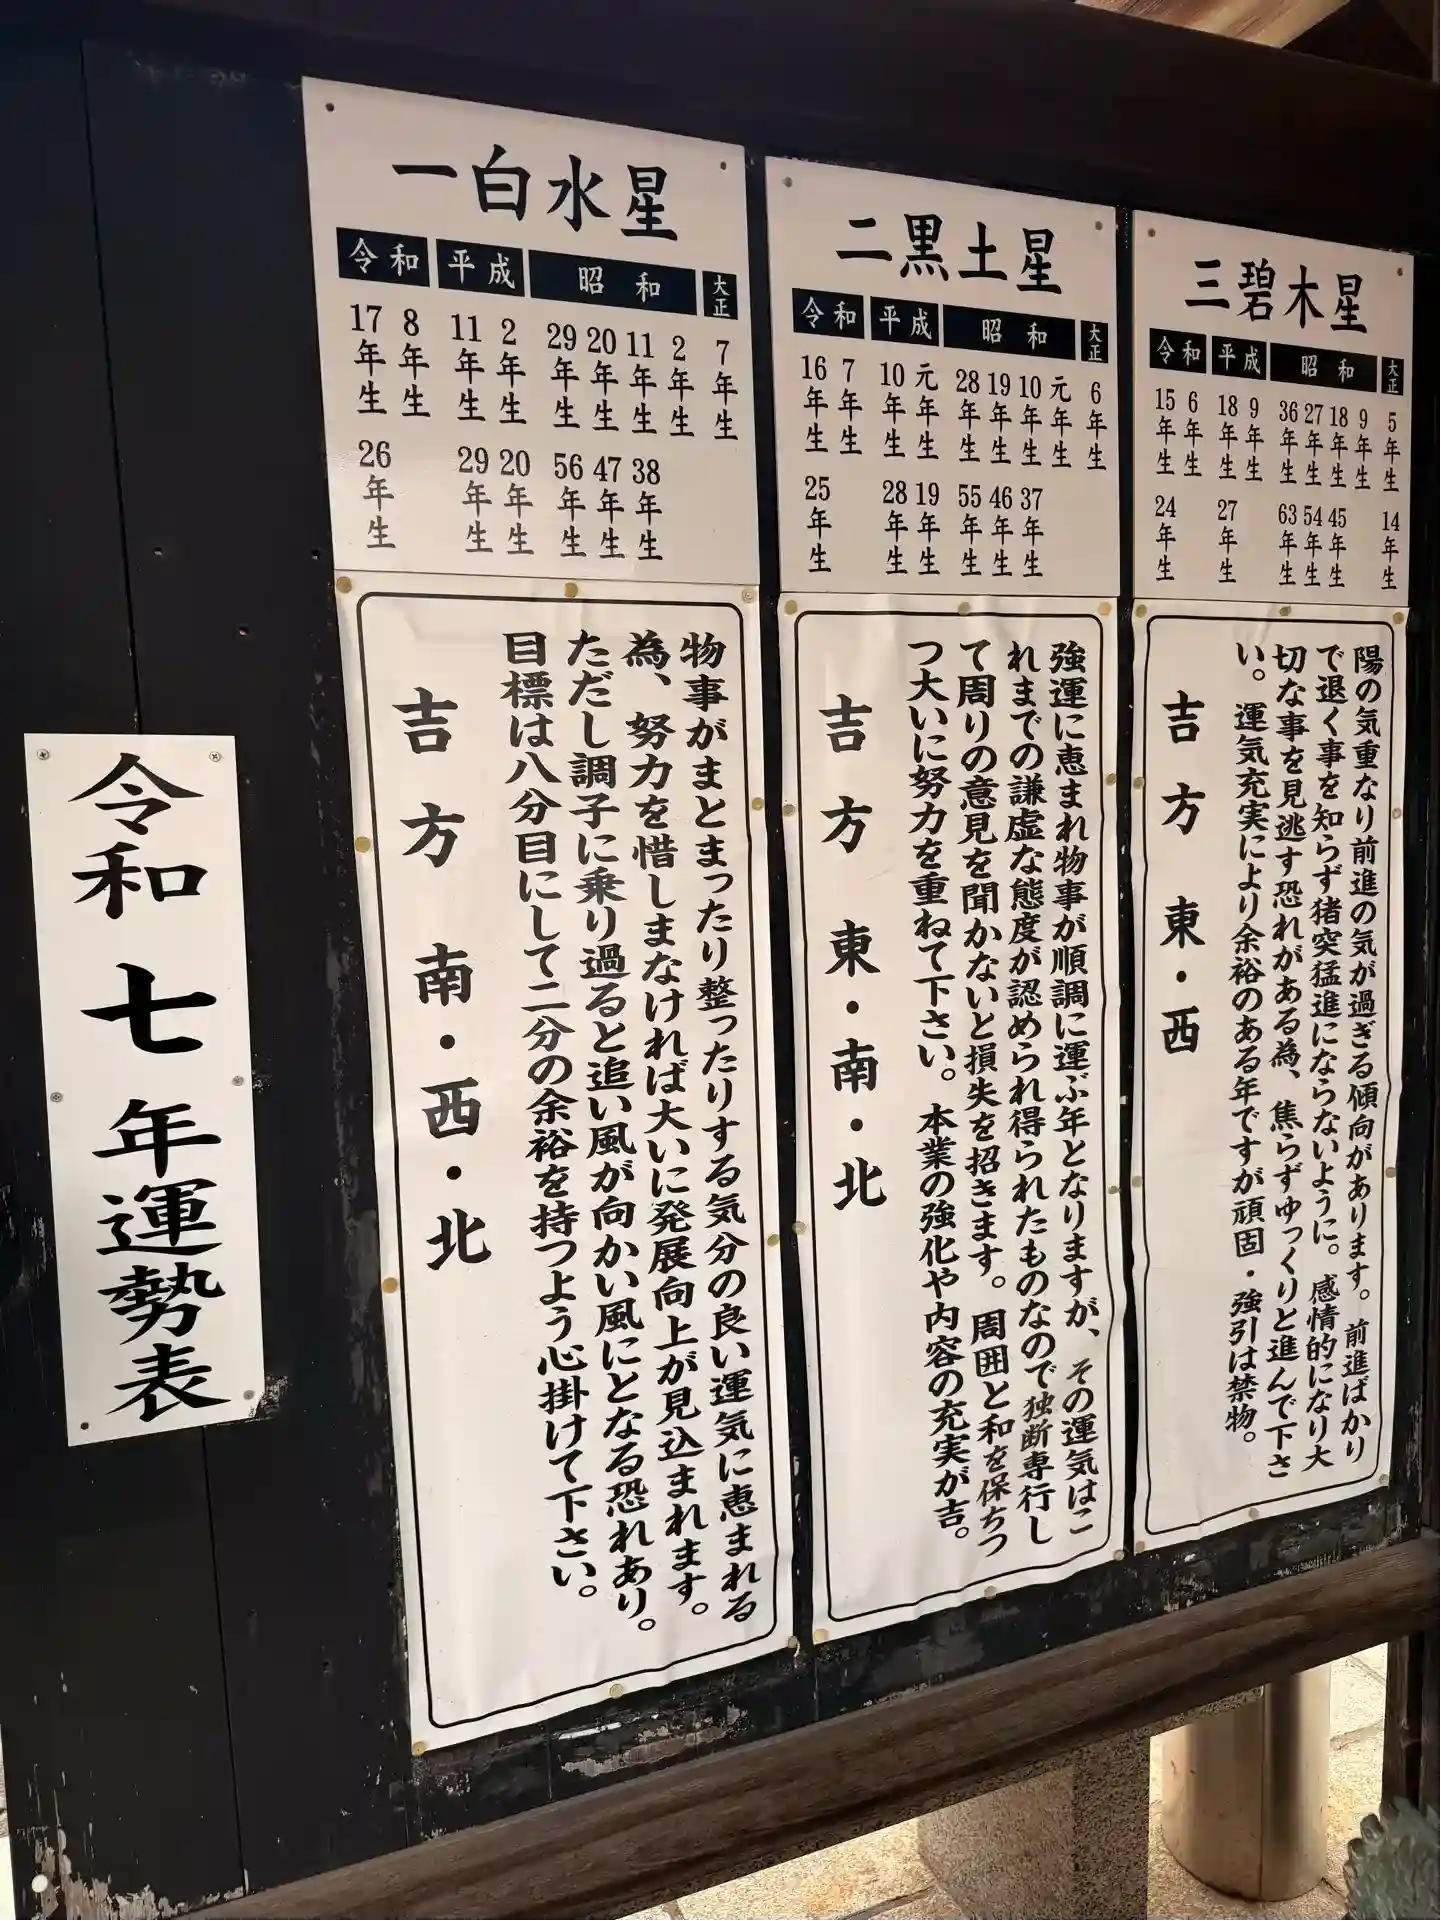 令和七年運勢表
一白水星
令和 平成 昭和 大正
17年生 8年生 11年生 2年生 29年生 20年生 11年生 2年生 7年生
26年生 29年生 20年生 56年生 47年生 38年生
物事がまとまったり整ったりする気分の良い運気に恵まれる
為、努力を惜しまなければ大いに発展向上が見込まれます。
ただし調子に乗り過ると追い風が向かい風にとなる恐れあり。
目標は八分目にして二分の余裕を持つよう心掛けて下さい。
吉方 南・西・北
二黒土星
令和 平成 昭和 大正
16年生 7年生 10年生 元年生 28年生 19年生 10年生 元年生 6年生
25年生 28年生 19年生 55年生 46年生 37年生
強運に恵まれ物事が順調に運ぶ年となりますが、その運気はこ
れまでの謙虚な態度が認められ得られたものなので独断専行し
て周りの意見を聞かないと損失を招きます。周囲と和を保ちつ
つ大いに努力を重ねて下さい。本業の強化や内容の充実が吉。
吉方 東・南・北
三碧木星
令和 平成 昭和 大正
15年生 6年生 18年生 9年生 36年生 27年生 18年生 9年生 5年生
24年生 27年生 63年生 54年生 45年生 14年生
陽の気重なり前進の気が過ぎる傾向があります。前進ばかり
で退く事を知らず猪突猛進にならないように。感情的になり大
切な事を見逃す恐れがある為、焦らずゆっくりと進んで下さ
い。運気充実により余裕のある年ですが頑固・強引は禁物。
吉方 東・西